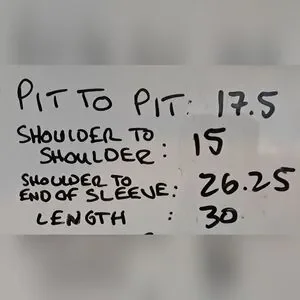 PIT TO PIT: 17.5
SHOULDER TO
SHOULDER: 15
SHOULDER TO
END OF SLEEVE: 26.25
LENGTH : 30